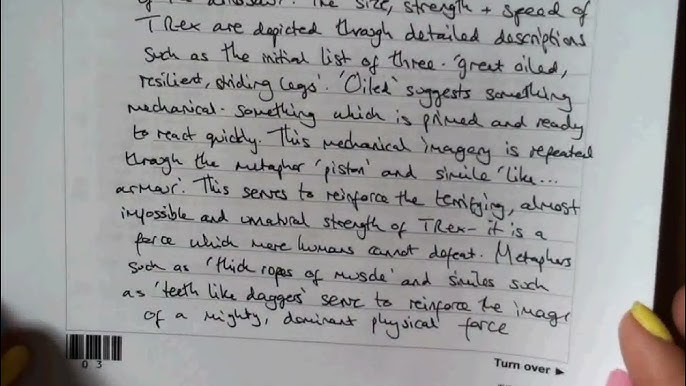 of the dinosaur. The size, strength + speed of
TRex are depicted through detailed descriptions
such as the initial list of three. 'great oiled,
resilient, striding legs'. 'Oiled' suggests something
mechanical - something which is primed and ready
to react quickly. This mechanical imagery is repeated
through the metaphor 'piston' and simile 'like...
armour'. This serves to reinforce the terrifying, almost
impossible and unnatural strength of TRex - it is a
force which mere humans cannot defeat. Metaphors
such as 'thick ropes of muscle' and similes such
as 'teeth like daggers' serve to reinforce the image
of a mighty, dominant physical force
03
Turn over ►